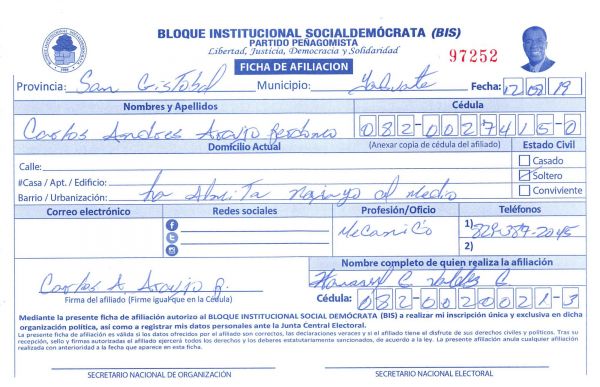 BLOQUE INSTITUCIONAL SOCIALDEMÓCRATA (BIS)
PARTIDO PEÑAGOMISTA
Libertad, Justicia, Democracia y Solidaridad
FICHA DE AFILIACION
97252
Provincia: San Cristobal Municipio: Yaguate Fecha: 12 08 19
Nombres y Apellidos Cédula
Carlos Andres Araujo 082-0027415-0
Domicilio Actual (Anexar copia de cédula del afiliado) Estado Civil
Calle: Casado
#Casa / Apt. / Edificio: Soltero
Barrio / Urbanización: La Najayo al Medio Conviviente
Correo electrónico Redes sociales Profesión/Oficio Teléfonos
Mecanico 1) 829-387-2045
2)
Nombre completo de quien realiza la afiliación
Carlos A. Araujo R. C. Valdez C
Firma del afiliado (Firme igual que en la Cédula) Cédula: 082-0020021-3
Mediante la presente ficha de afiliación autorizo al BLOQUE INSTITUCIONAL SOCIAL DEMÓCRATA (BIS) a realizar mi inscripción única y exclusiva en dicha
organización política, así como a registrar mis datos personales ante la Junta Central Electoral.
La presente ficha de afiliación es válida si los datos ofrecidos por el afiliado son correctos, las declaraciones veraces y si el afiliado tiene el disfrute de sus derechos civiles y políticos. Tras su
recepción, sello y firmas autorizadas el afiliado ejercerá todos los derechos y los deberes estatutariamente sancionados, de acuerdo a la ley. La presente afiliación anula cualquier afiliación
realizada con anterioridad a la fecha que aparece en esta ficha.
SECRETARIO NACIONAL DE ORGANIZACIÓN SECRETARIO NACIONAL ELECTORAL